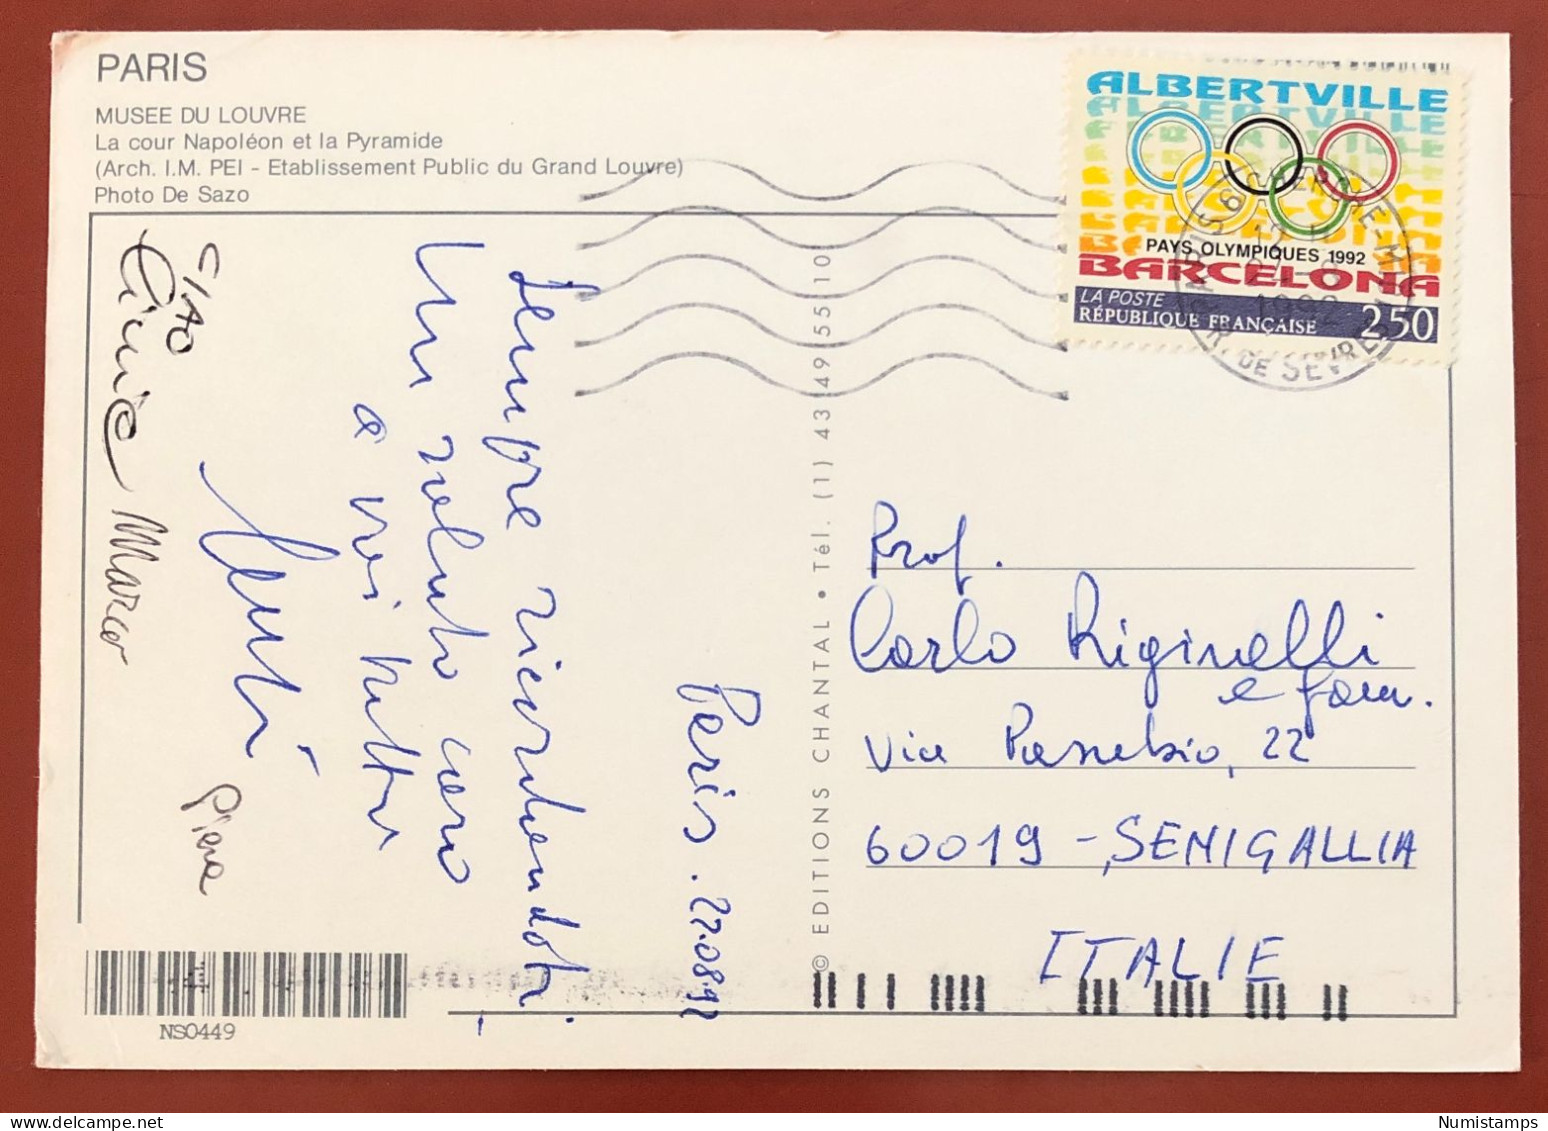 PARIS
MUSEE DU LOUVRE
La cour Napoléon et la Pyramide
(Arch. I.M. PEI - Etablissement Public du Grand Louvre)
Photo De Sazo
ALBERTVILLE
PAYS OLYMPIQUES 1992
BARCELONA
LA POSTE
RÉPUBLIQUE FRANÇAISE 2,50
PARIS 6 CHERCHE-M
1992
DE SEVRE
Paris. 27.08.92
Sempre ricordandoti
Un saluto caro
a voi tutti
CIAO
Marco
Piera
© EDITIONS CHANTAL • Tél. (1) 43 49 55 10
Prof.
Carlo Riginelli
e fam.
Via 22
60019 - SENIGALLIA
ITALIE
NS0449
Numistamps